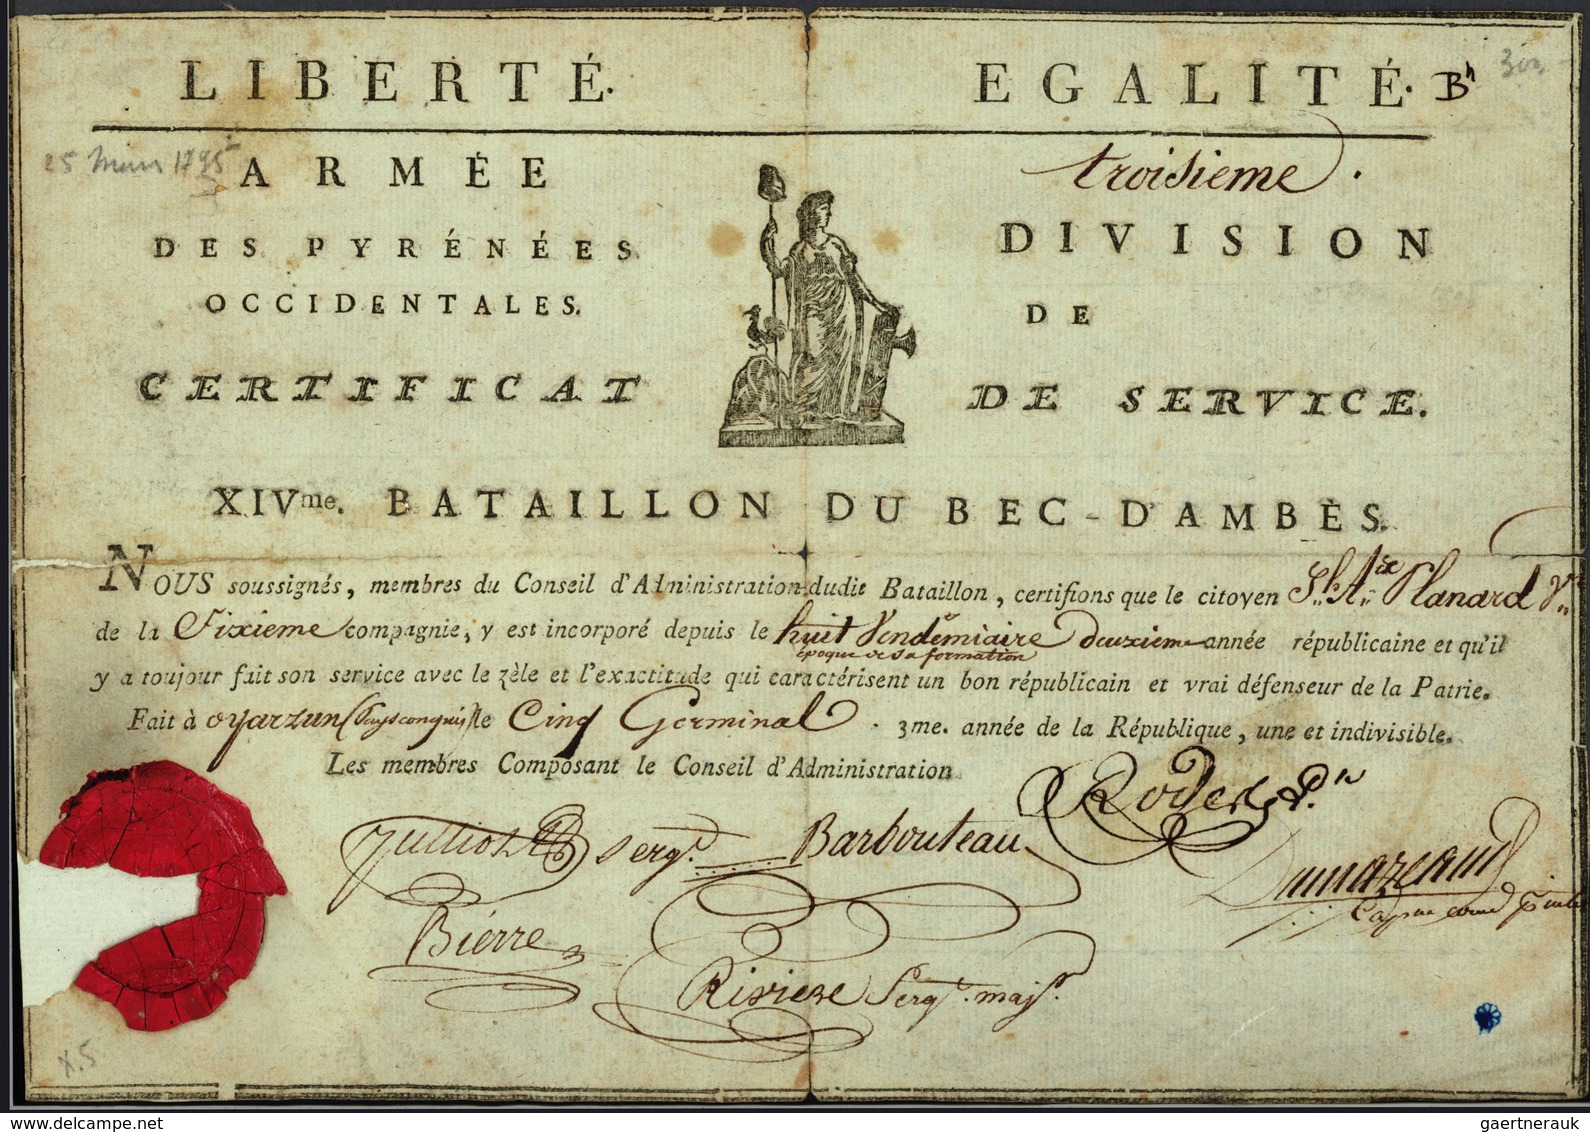 LIBERTÉ. EGALITÉ. Bn
300
25 Mars 1795
ARMÉE
DES PYRÉNÉES
OCCIDENTALES.
troisieme.
DIVISION
DE
CERTIFICAT DE SERVICE.
XIVme. BATAILLON DU BEC-DAMBÈS.
NOUS soussignés, membres du Conseil d'Administration dudit Bataillon, certifions que le citoyen Planard
de la Sixieme compagnie, y est incorporé depuis le huit Vendémiaire deuxieme année républicaine et qu'il
époque de sa formation
y a toujour fait son service avec le zèle et l'exactitude qui caractérisent un bon républicain et vrai défenseur de la Patrie.
Fait à oyarzun (Pays conquis) le Cinq Germinal. 3me. année de la République, une et indivisible.
Les membres Composant le Conseil d'Administration
sergt. Barbouteau
Dumazeaud
Bierre
Riviere Sergt. majr.
x.5
gaertnerauk